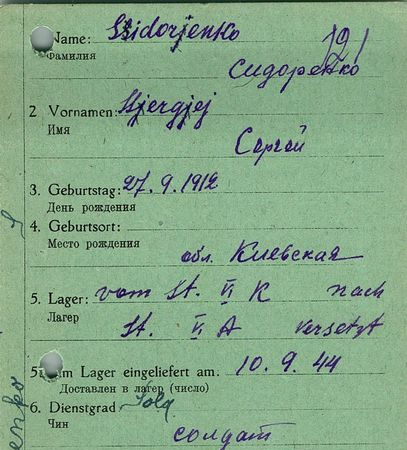 Name: Ssidorjenko 121
Фамилия
Сидоренко
2 Vornamen: Ssjergjej
Имя
Сергей
3. Geburtstag: 27. 9. 1912
День рождения
4. Geburtsort:
Место рождения
обл. Киевская
5. Lager: vom St. VI K nach
Лагер
St. VI A versetzt
5. Im Lager eingeliefert am: 10. 9. 44
Доставлен в лагер (число)
6. Dienstgrad Sold
Чин
солдат
enko